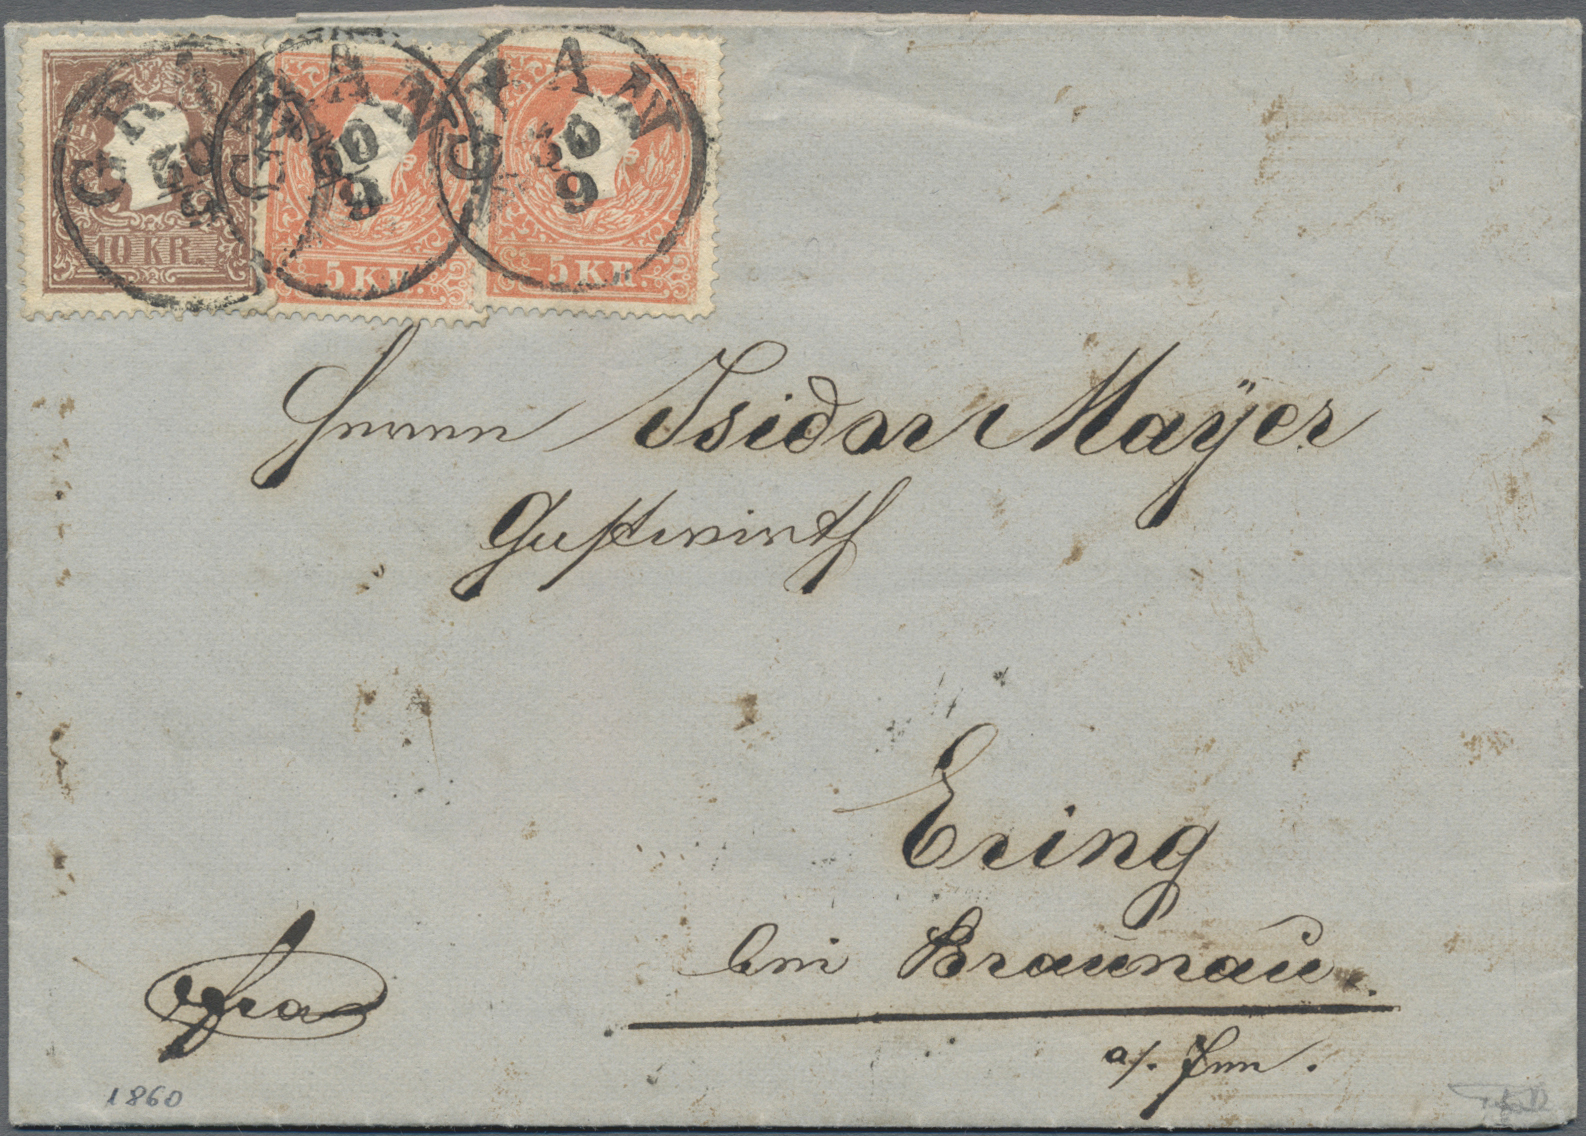 GRAN
30
9
GRAN
30
9
GRAN
30
9
10 KR.
5 KR.
5 KR.
Herrn Isidor Mayer
Gastwirth
Ering
bei Braunau
a/. Inn.
fra
1860